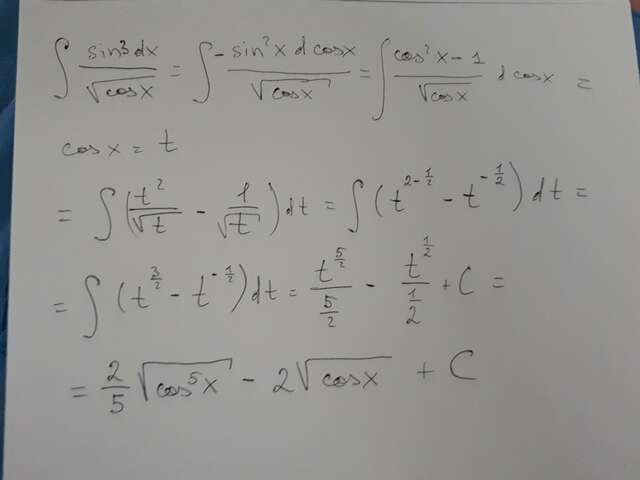 ∫ sin³dx/√cosx = ∫ -sin²x d cosx/√cosx = ∫ cos²x - 1/√cosx d cosx =
cosx = t
= ∫ (t²/√t - 1/√t) dt = ∫ (t^(2-1/2) - t^(-1/2)) dt =
= ∫ (t^(3/2) - t^(-1/2)) dt = t^(5/2)/(5/2) - t^(1/2)/(1/2) + C =
= 2/5 √cos⁵x - 2√cosx + C